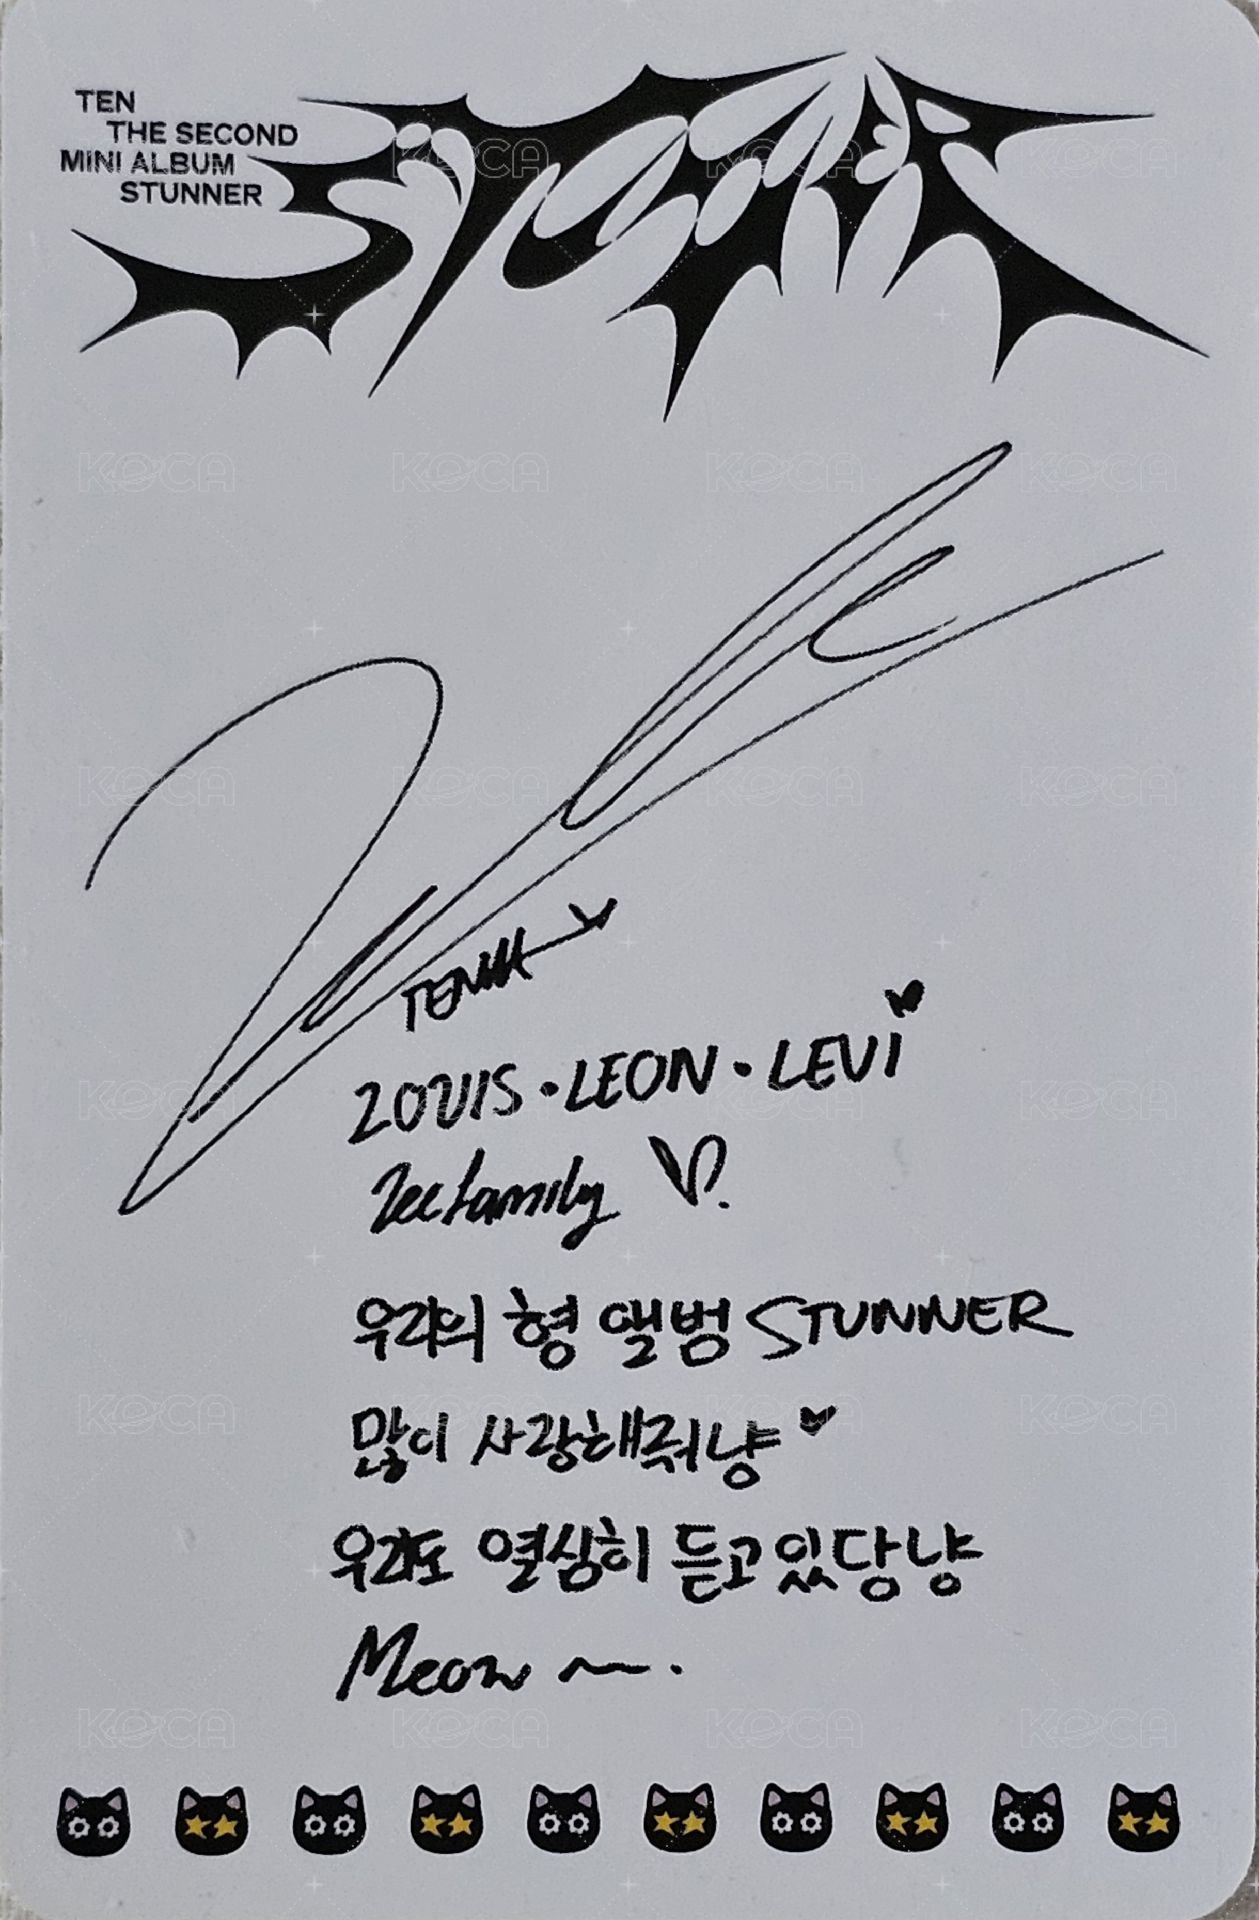 TEN
THE SECOND
MINI ALBUM
STUNNER
STUNNER
TEN
LOUIS · LEON · LEVI
Lee family
우리의 형 앨범 STUNNER
많이 사랑해줘냥
우리도 열심히 듣고있당냥
Meow ~.
KOCA